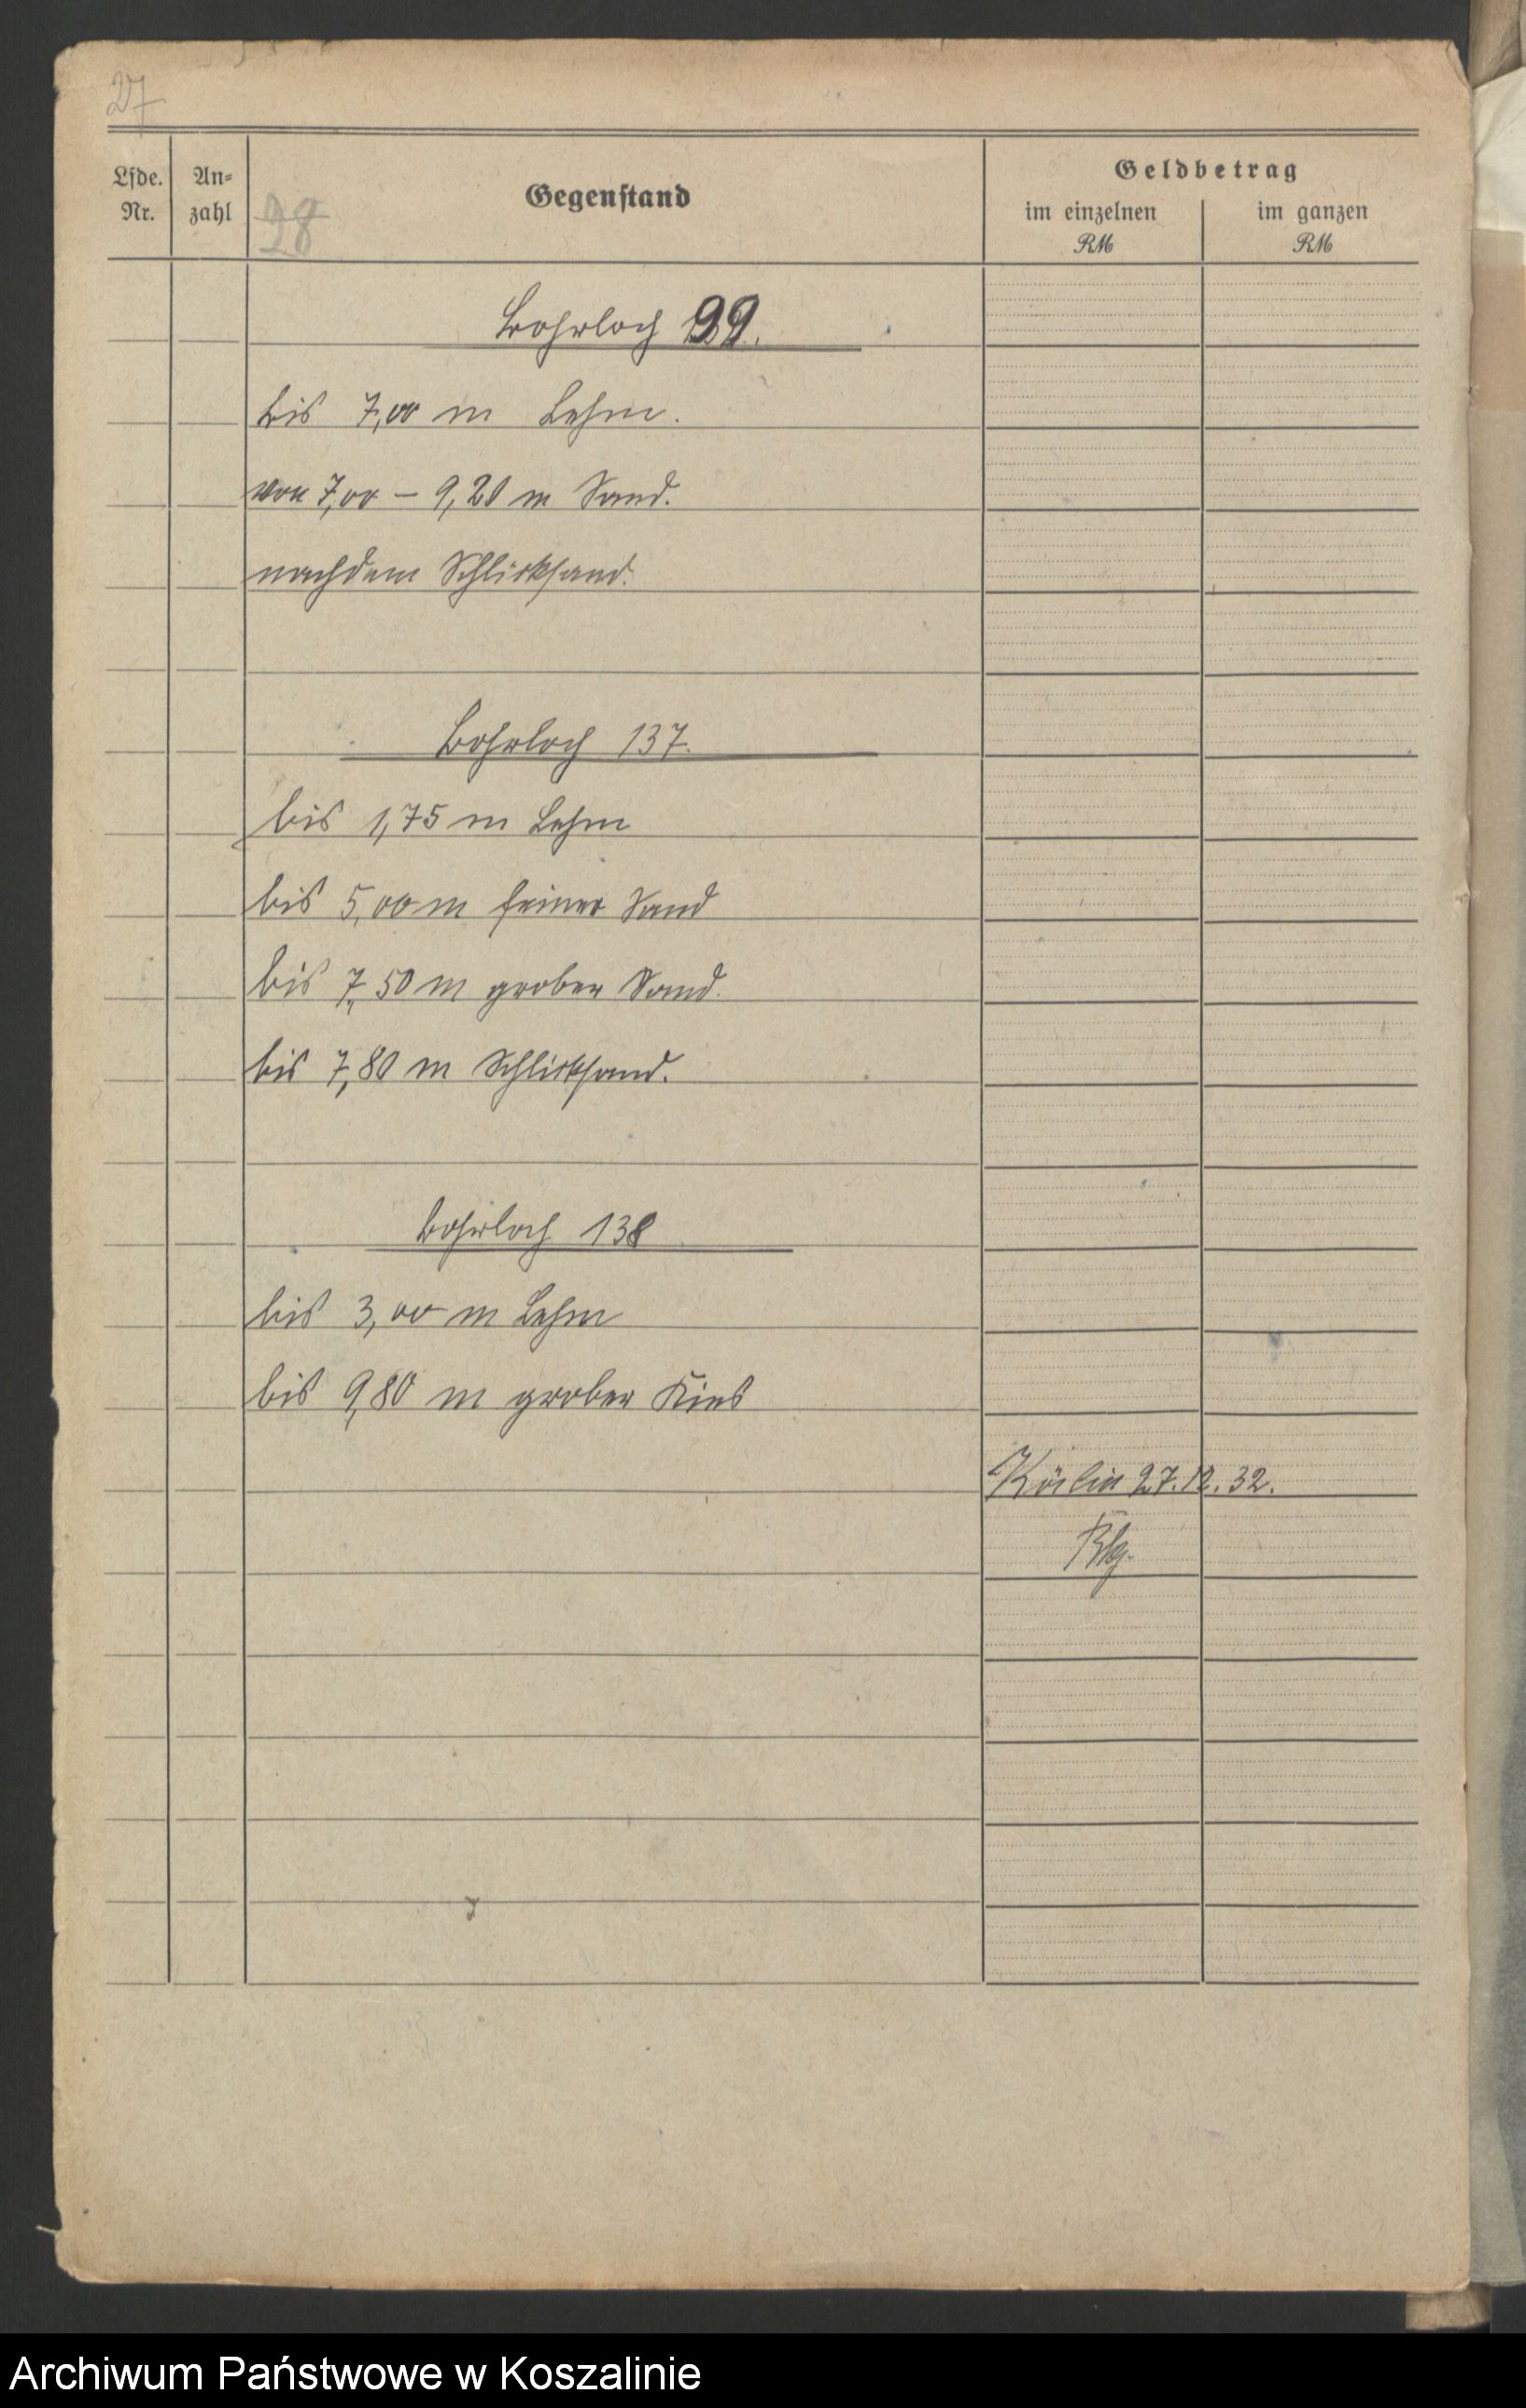 27
Lfde. Nr.
An-zahl
28
Gegenstand
Geldbetrag
im einzelnen RM
im ganzen RM
Bohrloch 99.
bis 7,00 m Lehm.
von 7,00 – 9,20 m Sand.
nachdem Schlicksand.
Bohrloch 137.
bis 1,75 m Lehm
bis 5,00 m feiner Sand
bis 7,50 m grober Sand.
bis 7,80 m Schlicksand.
Bohrloch 138
bis 3,00 m Lehm
bis 9,80 m grober Kies
Körlin 27.12.32.
Archiwum Państwowe w Koszalinie